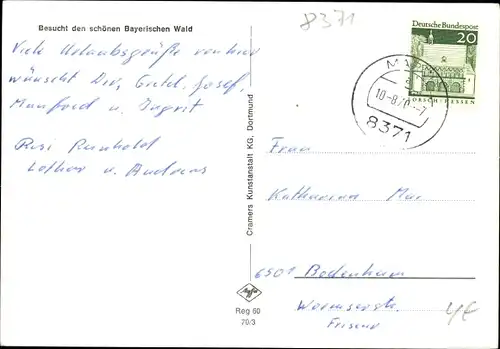 8371
Besucht den schönen Bayerischen Wald
Viele Urlaubsgrüße von hier
wünscht Dir, Gretel, Josef,
Manfred u. Ingrit
Rosi Reinhold
Lothar u. Andreas
Cramers Kunstanstalt KG, Dortmund
Agfa
Reg 60
70/3
Deutsche Bundespost
20
LORSCH/HESSEN
10-8.70-7
8371
Frau
Katharina
6501 Bodenheim
Wormserstr.
Friseur
4€